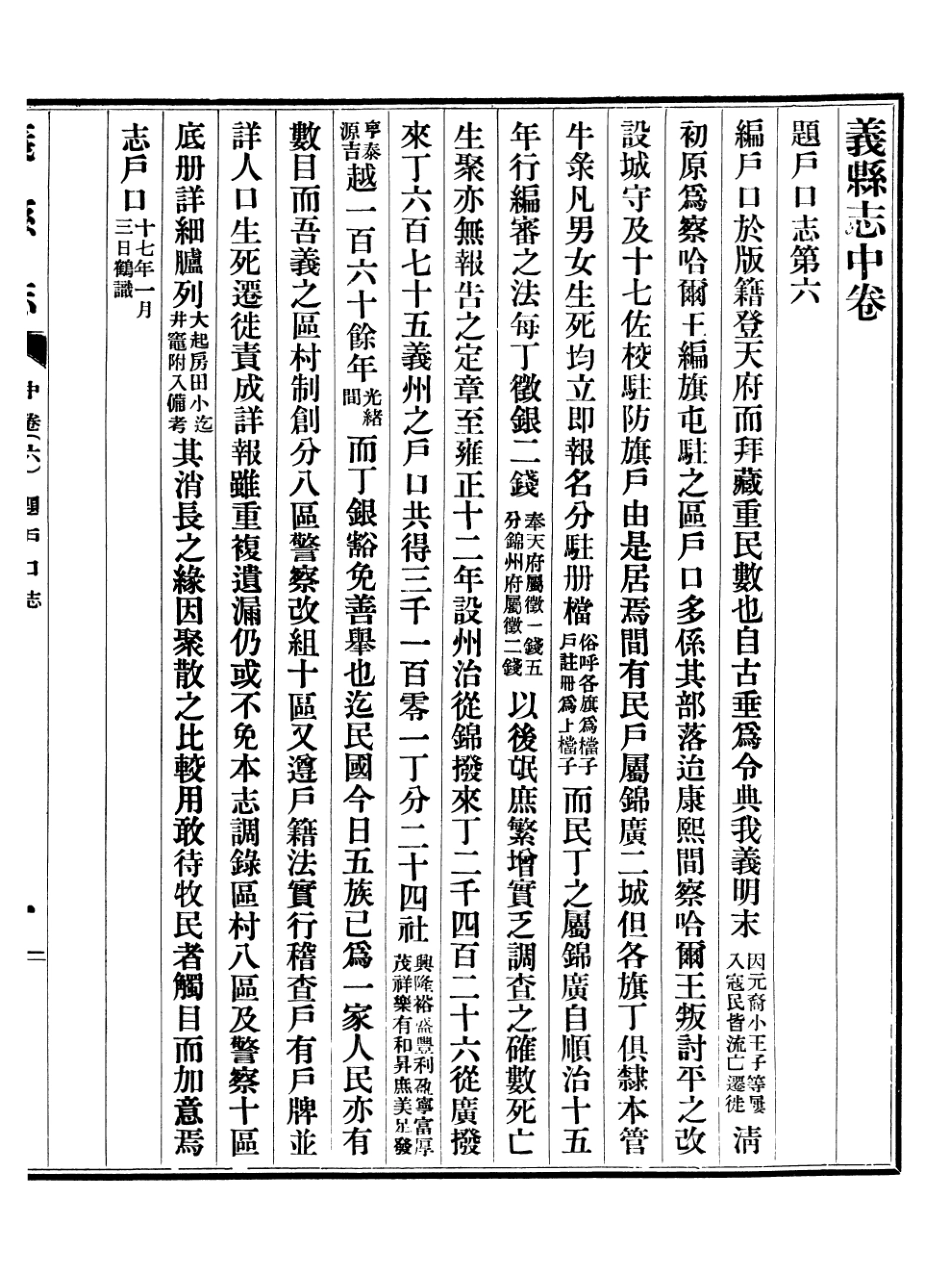 義縣志中卷
題戶口志第六
編戶口於版籍登天府而拜藏重民數也自古垂爲令典我義明末因元裔小王子等屢入寇民皆流亡遷徙淸
初原爲察哈爾王編旗屯駐之區戶口多係其部落迨康熙間察哈爾王叛討平之改
設城守及十七佐校駐防旗戶由是居焉間有民戶屬錦廣二城但各旗丁俱隸本管
牛彔凡男女生死均立即報名分駐册檔俗呼各旗爲檔子戶註冊爲上檔子而民丁之屬錦廣自順治十五
年行編審之法每丁徵銀二錢奉天府屬徵一錢五分錦州府屬徵二錢以後氓庶繁增實乏調查之確數死亡
生聚亦無報告之定章至雍正十二年設州治從錦撥來丁二千四百二十六從廣撥
來丁六百七十五義州之戶口共得三千一百零一丁分二十四社興隆裕盛豐利盈寧富厚茂祥樂有和昇庶美足發
亨泰源吉越一百六十餘年光緒間而丁銀豁免善舉也迄民國今日五族已爲一家人民亦有
數目而吾義之區村制創分八區警察改組十區又遵戶籍法實行稽查戶有戶牌並
詳人口生死遷徙責成詳報雖重複遺漏仍或不免本志調錄區村八區及警察十區
底册詳細臚列大起房田小迄井竈附入備考其消長之緣因聚散之比較用敢待牧民者觸目而加意焉
志戶口十七年一月三日鶴識
義縣志 中卷(六) 題戶口志 一